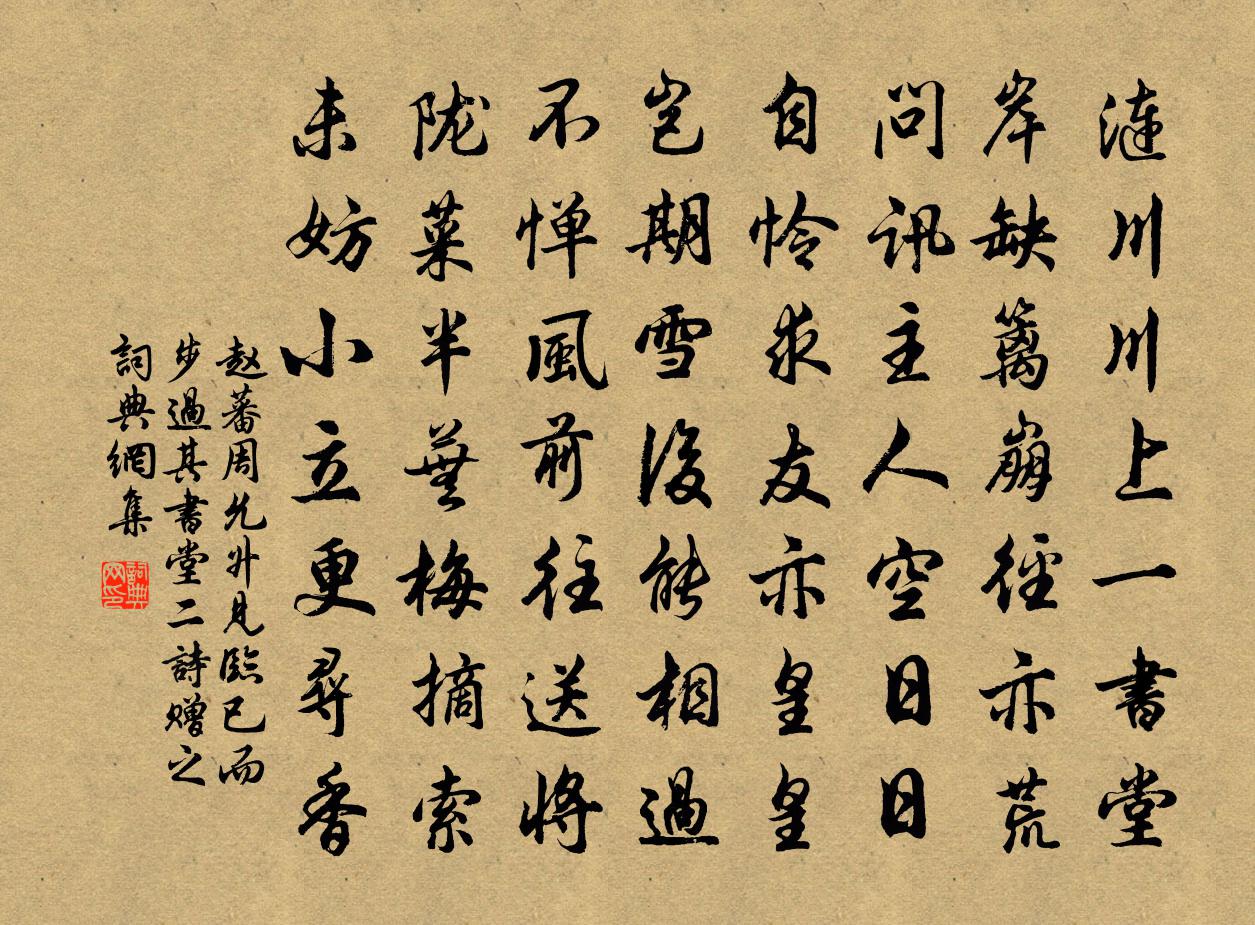 涟川川上一書堂
岸缺篱崩徑亦荒
問訊主人空日日
自怜求友亦皇皇
岂期雪後能相過
不惮風前往送將
陇菜半蕪梅摘索
未妨小立更尋香
赵蕃周允升見臨已而
步過其書堂二詩赠之
詞典網集
詞典网印